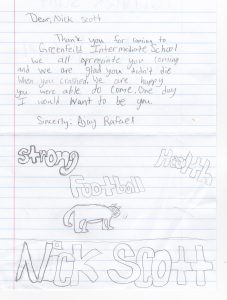 Dear, Nick Scott
Thank you for coming to
Greenfeild Intermediate School
we all apreciate you coming
and we are glad you didn't die
when you crashed. We are happy
you were able to come. One day
I would want to be you.
Sincerly: Rafael
Strong Health
Football
Nick Scott